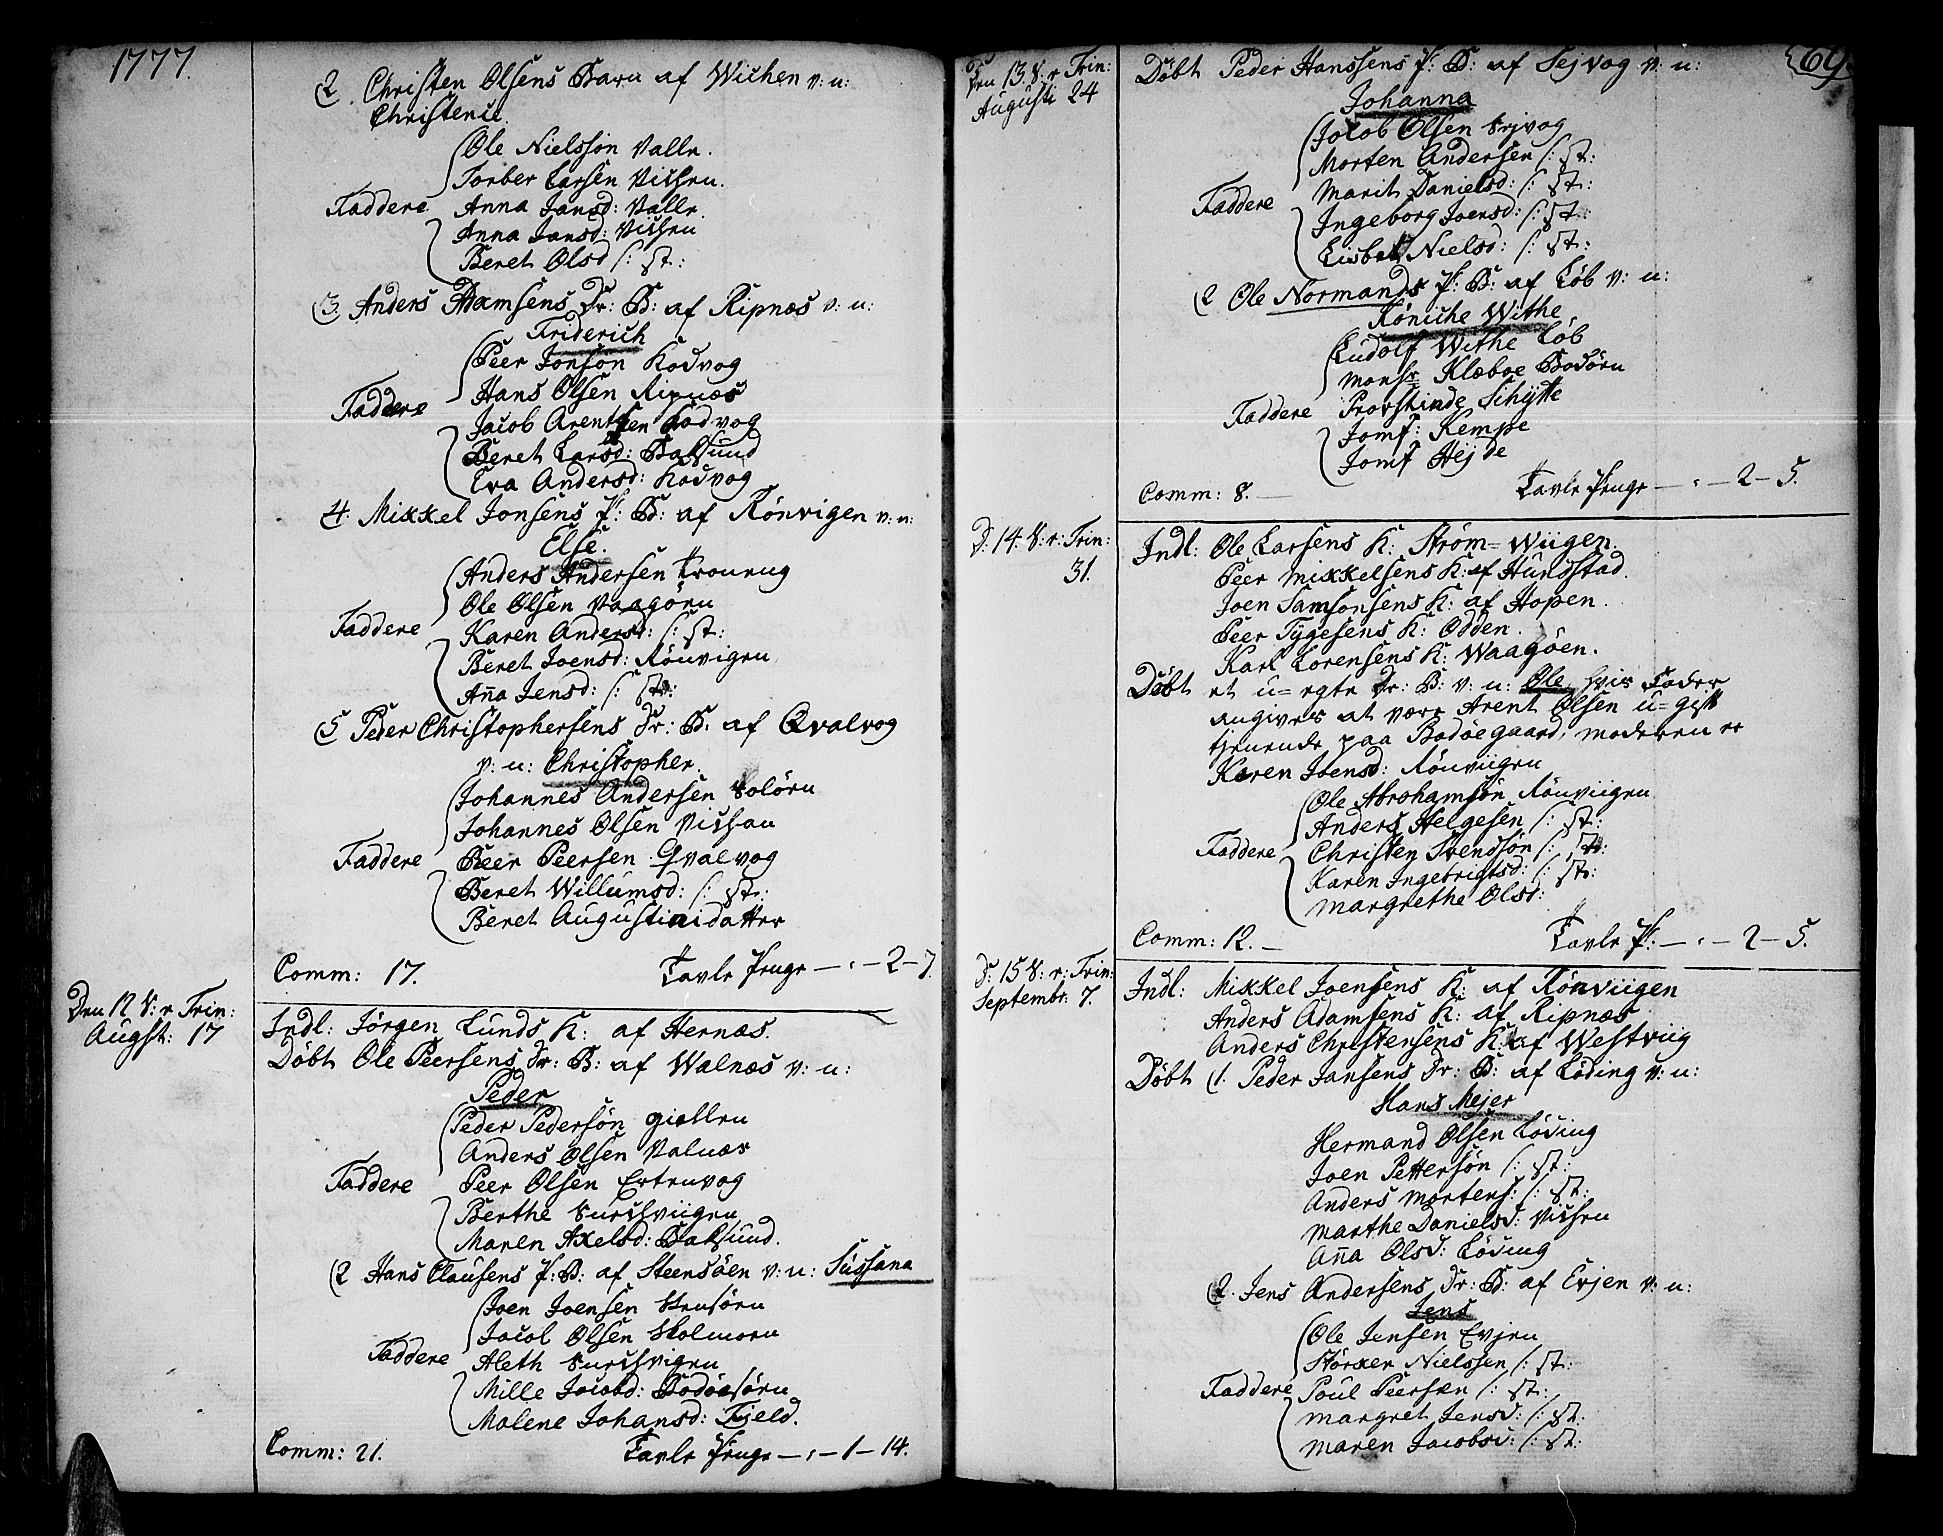 1777.
(2 Christen Olsens Barn af Wichen v: n:
Christence.
Ole Nielssøn Valle.
Torber Larsen Vishen.
Faddere Anna Jansd: Valle.
Anna Jansd: Vishen
Beret Olsd /: st:
(3. Anders Adamsens Dr: B: af Ripnæs v: n:
Friderich
Peer Jonsøn Kodvog
Hans Olsen Ripnæs
Faddere
Jacob Arentsen Kodvog
Beret Larsd: Balsund
Eva Andersd: Kodvog
4. Mikkel Jonsens P: B: af Rönvigen v: n:
Else.
Anders Andersen
Ole Olsen Vaagöen
Faddere Karen Andersd: /: st:
Beret Joensd: Rönvigen
Aña Jensd: /: st:
(5 Peder Christophersens Dr: B: af Qvalvog
v: n: Christopher.
Johannes Andersen
Johannes Olsen Vishen
Faddere Peer Peersen Qvalvog
Beret Willumsd: /: st:
Beret Augustinidatter
Comm: 17. Tavle Penge — " — 2 — 7.
Den 12 S: e Trin:
Augst: 17
Indl: Jörgen Lunds K: af Hernæs.
Döbt Ole Peersens Dr: B: af Walnæs v: n:
Peder
Peder Pedersön Giellen
Anders Olsen Valnæs
Faddere Peer Olsen Ertenvog
Berthe
Maren Axelsd: Balsund.
(2 Hans Clausens P: B: af Steensöen v: n: Sussana
Joen Joensen Stensöen
Jacob Olsen
Faddere Aleth
Mille Jacobd: Bodöesöen
Malene Johansd: Fjeld.
Comm: 21. Tavle Penge — " — 1 — 14.
69.
Den 13. S: e Trin:
Augusti 24
Döbt Peder Hanssens P: B: af Sejvog v: n:
Johanna
Jacob Olsen Sejvog
Morten Andersen /: st:
Faddere Marit Danielsd: /: st:
Ingeborg Joensd: /: st:
Lisbet Nielsd: /: st:
(2 Ole Normands P: B: af Löb v: n:
Röniche Withe
Ludolf Withe Löb
Monsr Klæboe Bodöen
Faddere Provstinde Schytte
Jomf: Kempe
Jomf Hejde
Comm: 8. — Tavle Penge — " — 2 — 5.
D: 14. S: e: Trin:
31.
Indl: Ole Larsens K: Ström=Wiigen.
Peer Mikkelsens K: af Hundstad.
Joen Samsonsens K: af Hopen.
Peer Tygesens K: Odden.
Karl Lorensens K: Waagöen.
Döbt et u=egte Dr: B: v: n: Ole, hvis Fader
angives at være Arent Olsen u=gift
tjenende paa Bodöegaard, Moderen er
Karen Joensd: Rönviigen
Ole Abrahamsön Rönviigen
Anders Helgesen /: st:
Faddere Christen Svendsön /: st:
Karen Ingebrigtsd: /: st:
Margrethe Olsd:
Comm: 12. — Tavle P: — " — 2 — 5.
D: 15 S: e: Trin:
Septembr: 7.
Indl: Mikkel Joensens K: af Rönviigen
Anders Adamsens K: af Ripnæs
Anders Christensens K: af Westviig
Döbt (1. Peder Jansens Dr: B: af Löding v: n:
Hans Mejer
Hermand Olsen Löding
Joen Pettersön /: st:
Anders Mortens: /: st:
Marthe Danielsd: Vishen
Aña Olsd: Löding
(2. Jens Andersens Dr: B: af Evjen v: n:
Jens
Ole Jensen Evjen
Störker Nielssen /: st:
Faddere Poul Peersen /: st:
Margret Jensd: /: st:
Maren Jacobsd: /: st: